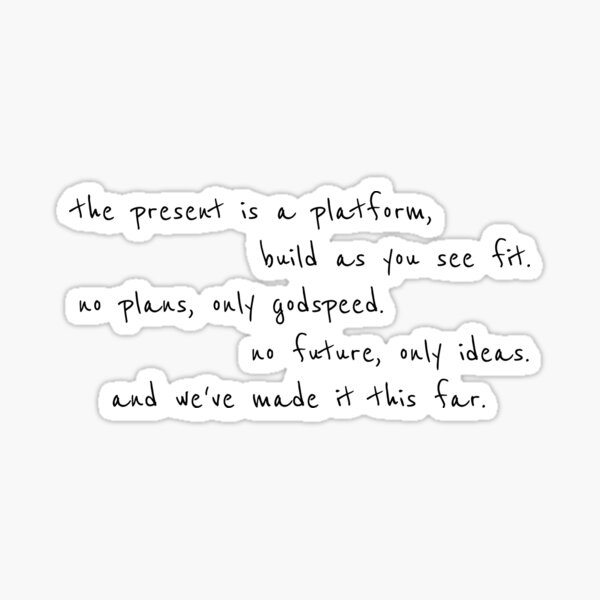 the present is a platform,
build as you see fit.
no plans, only godspeed.
no future, only ideas.
and we've made it this far.